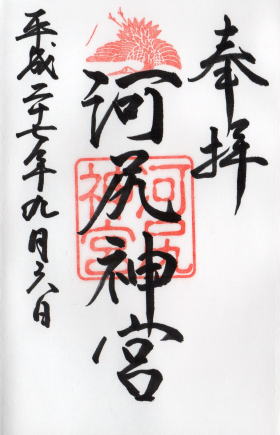 奉拝
河尻神宮
河尻神宮
平成二十七年九月六日